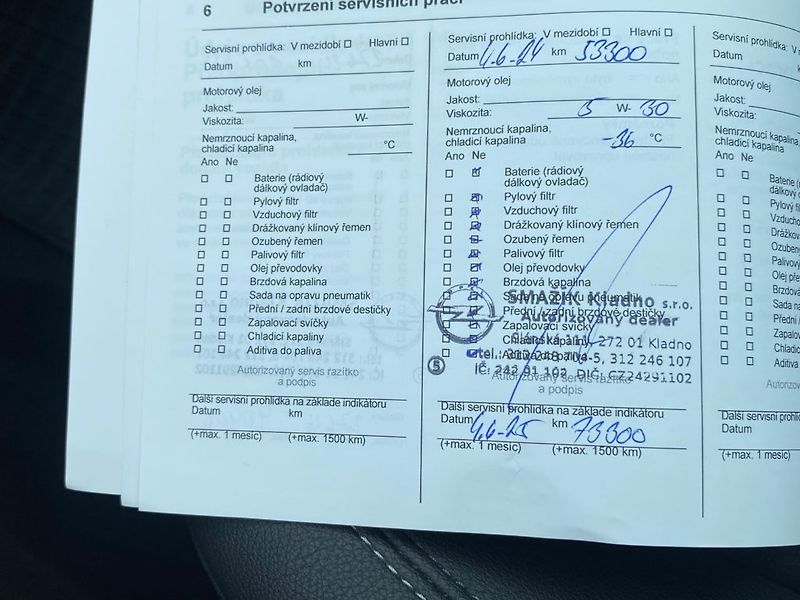 6 Potvrzení servisních prací
Servisní prohlídka: V mezidobí Hlavní
Datum km
Motorový olej
Jakost:
Viskozita: W-
Nemrznoucí kapalina,
chladicí kapalina °C
Ano Ne
Baterie (rádiový
dálkový ovladač)
Pylový filtr
Vzduchový filtr
Drážkovaný klínový řemen
Ozubený řemen
Palivový filtr
Olej převodovky
Brzdová kapalina
Sada na opravu pneumatik
Přední / zadní brzdové destičky
Zapalovací svíčky
Chladicí kapaliny
Aditiva do paliva
Autorizovaný servis razítko
a podpis
Další servisní prohlídka na základe indikátoru
Datum km
(+max. 1 mesíc) (+max. 1500 km)
Servisní prohlídka: V mezidobí Hlavní
Datum 4.6-24 km 53300
Motorový olej
Jakost:
Viskozita: 5 W- 30
Nemrznoucí kapalina,
chladicí kapalina -36 °C
Ano Ne
Baterie (rádiový
dálkový ovladač)
Pylový filtr
Vzduchový filtr
Drážkovaný klínový řemen
Ozubený řemen
Palivový filtr
Olej převodovky
Brzdová kapalina
Sada na opravu pneumatik
Přední / zadní brzdové destičky
Zapalovací svíčky
Chladicí kapaliny
Aditiva do paliva
SMAŽÍK Kladno s.r.o.
Autorizovaný dealer
272 01 Kladno
312 246 107
IČ: 242 91 102, DIČ: CZ24291102
5
Autorizovaný servis razítko
a podpis
Další servisní prohlídka na základe indikátoru
Datum 4.6-25 km 73300
(+max. 1 mesíc) (+max. 1500 km)
Servisní prohlídka: V
Datum
Motorový olej
Jakost:
Viskozita:
Nemrznoucí kapalina,
chladicí kapalina
Ano Ne
Další servisní prohlídka
Datum
(+max. 1 mesíc)